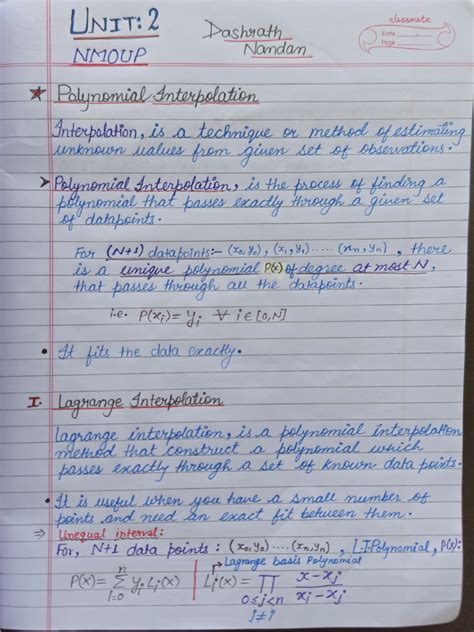 UNIT: 2
NMOUP
Dashrath
Nandan
classmate
Date
Page
★ Polynomial Interpolation
Interpolation, is a technique or method of estimating
unknown values from given set of observations.
➤ Polynomial Interpolation, is the process of finding a
polynomial that passes exactly through a given set
of datapoints.
For (N+1) datapoints:- (x₀,y₀), (x₁,y₁).....(xₙ,yₙ), there
is a unique polynomial P(x) of degree at most N,
that passes through all the datapoints.
i.e. P(xᵢ)= yᵢ ∀ i∈[0,N]
• It fits the data exactly.
I. Lagrange Interpolation
Lagrange interpolation, is a polynomial interpolation
method that construct a polynomial which
passes exactly through a set of known data points.
• It is useful when you have a small number of
points and need an exact fit between them.
⇒ Unequal interval:
For, N+1 data points : (x₀,y₀)....(xₙ,yₙ), L.I.Polynomial, P(x):
Lagrange basis Polynomial
P(x)= n∑i=0 yᵢ Lᵢ(x) Lᵢ(x) = ∏ 0≤j≤n j≠i (x-xⱼ)/(xᵢ-xⱼ)